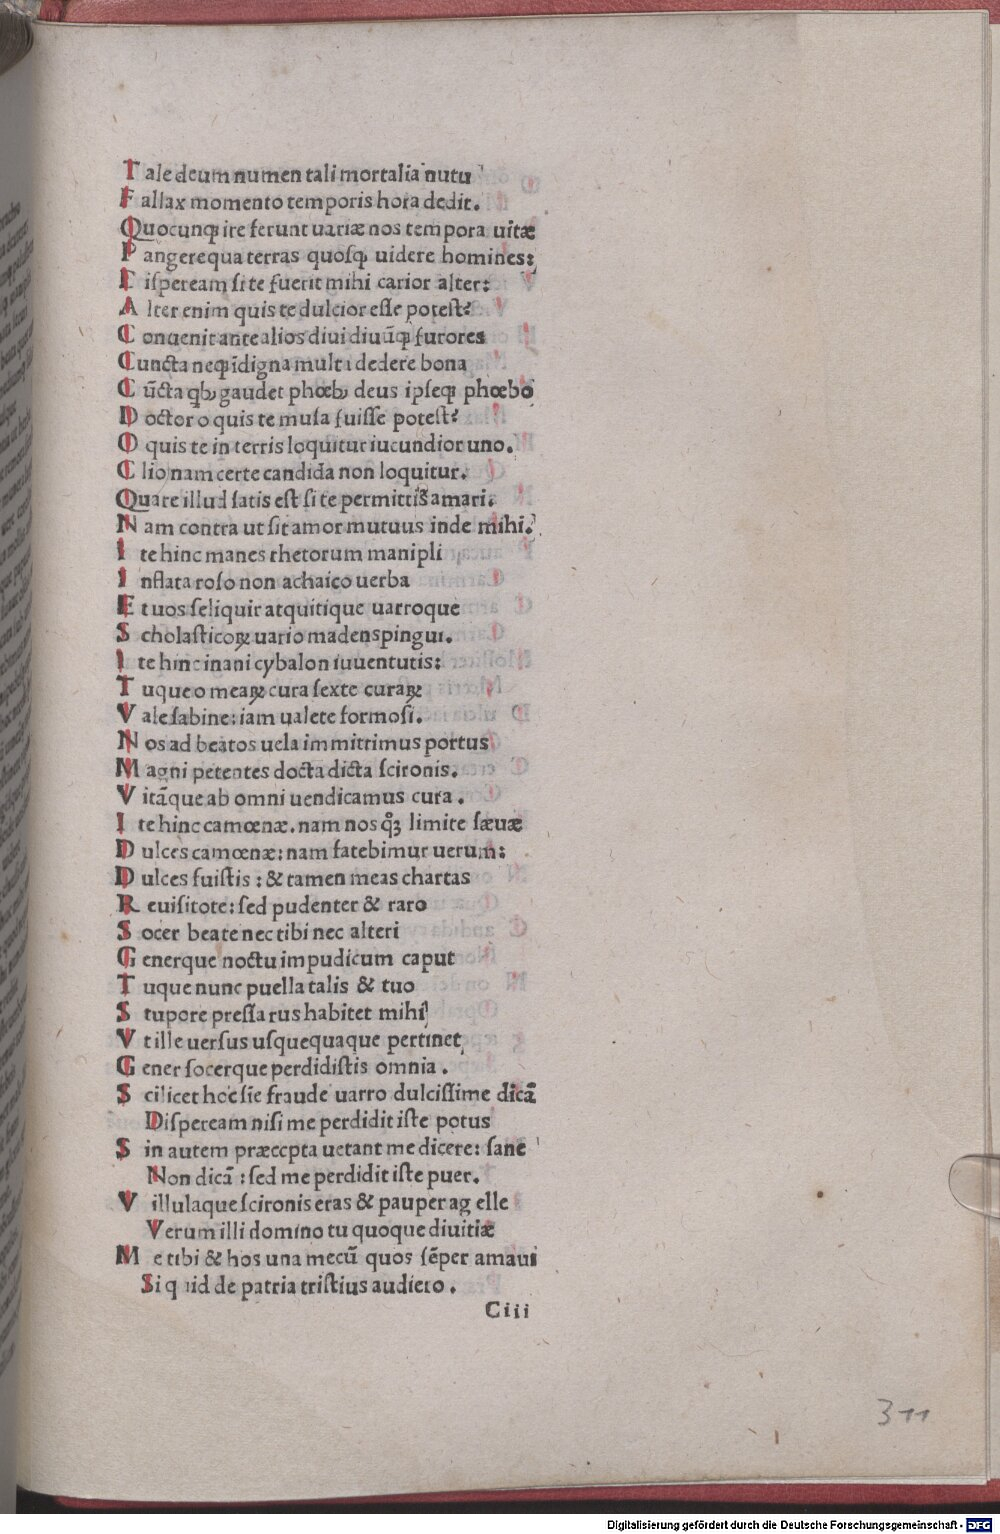 T ale deum numen tali mortalia nutu
F allax momento temporis hora dedit.
Quocunqꝫ ire ferunt uariæ nos tempora uitæ
P angerequa terras quosqꝫ uidere homines:
D ispeream si te fuerit mihi carior alter:
A lter enim quis te dulcior esse potest?
C onuenit ante alios diui diuūqꝫ furores
C uncta neqꝫ īdigna multa dedere bona
C ūcta qbꝫ gaudet phœbꝫ deus ipseqꝫ phœbo
D octor o quis te musa fuisse potest?
O quis te in terris loquitur iucundior uno.
C lio nam certe candida non loquitur.
Quare illud satis est si te permittis amari.
N am contra ut sit amor mutuus inde mihi.
I te hinc manes rhetorum manipli
I nflata roso non achaico uerba
E t uos seliquir atquitique uarroque
S cholasticoꝝ uario madenspingui.
I te hinc inani cybalon iuuentutis:
T uque o meaꝝ cura sexte curaꝝ
V ale sabine: iam ualete formosi.
N os ad beatos uela immittimus portus
M agni petentes docta dicta scironis.
V itāque ab omni uendicamus cura.
I te hinc camœnæ. nam nos qꝫ limite sæuæ
D ulces camœnæ: nam fatebimur uerum:
D ulces fuistis: & tamen meas chartas
R euisitote: sed pudenter & raro
S ocer beate nec tibi nec alteri
G enerque noctu impudicum caput
T uque nunc puella talis & tuo
S tupore pressa rus habitet mihi
V t ille uersus usquequaque pertinet
G ener socerque perdidistis omnia.
S cilicet hoc sie fraude uarro dulcissime dicā
Dispeream nisi me perdidit iste potus
S in autem præccpta uetant me dicere: sane
Non dicā: sed me perdidit iste puer.
V illulaque scironis eras & pauper ag elle
Verum illi domino tu quoque diuitiæ
M e tibi & hos una mecū quos sēper amaui
Si quid de patria tristius audiero.
Ciii
311
Digitalisierung gefördert durch die Deutsche Forschungsgemeinschaft - DFG